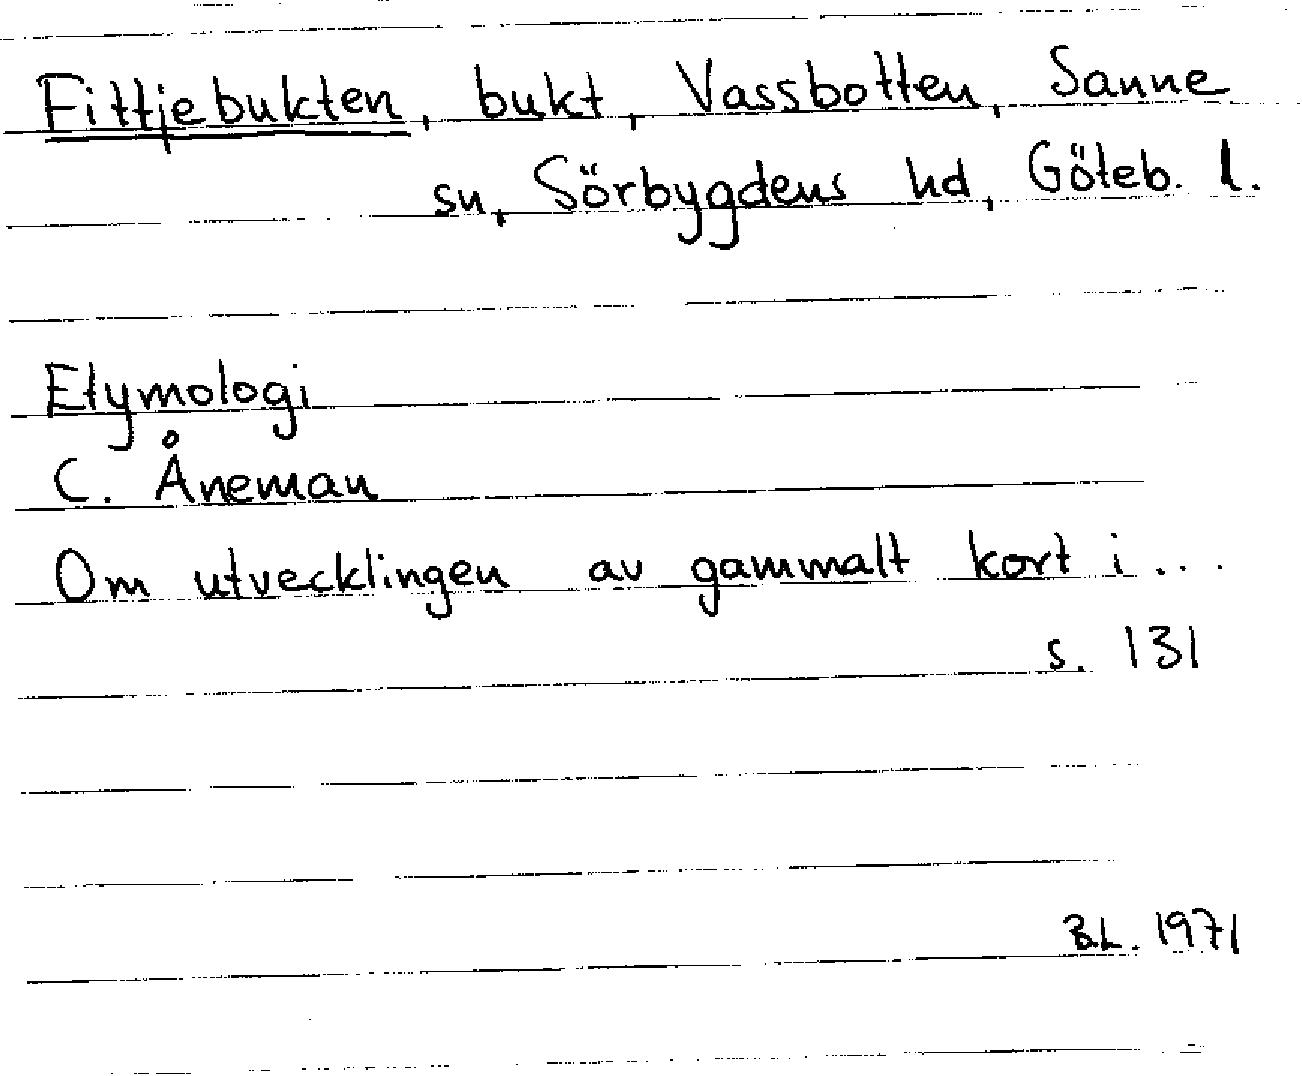 Fittjebukten, bukt, Vassbotten, Sanne
sn, Sörbygdens hd, Göteb. l.
Etymologi
C. Åneman
Om utvecklingen av gammalt kort i...
s. 131
B.L. 1971